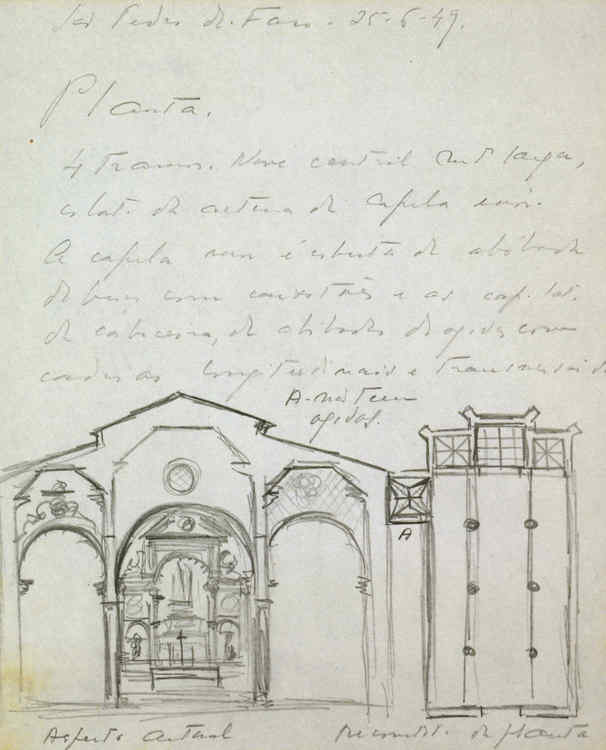 São Pedro de Faro. 25-6-49.
Planta.
4 Tramos. Nave central mt larga,
da altura da capela
A capela é coberta de abóbada
de berço com caixotões e as cap. lat.
de cabeceira, de abóbadas de ogivas com
cadeias longitudinais e transversais
A- não tem
ogivas.
A
Aspecto actual
Reconstit. da planta